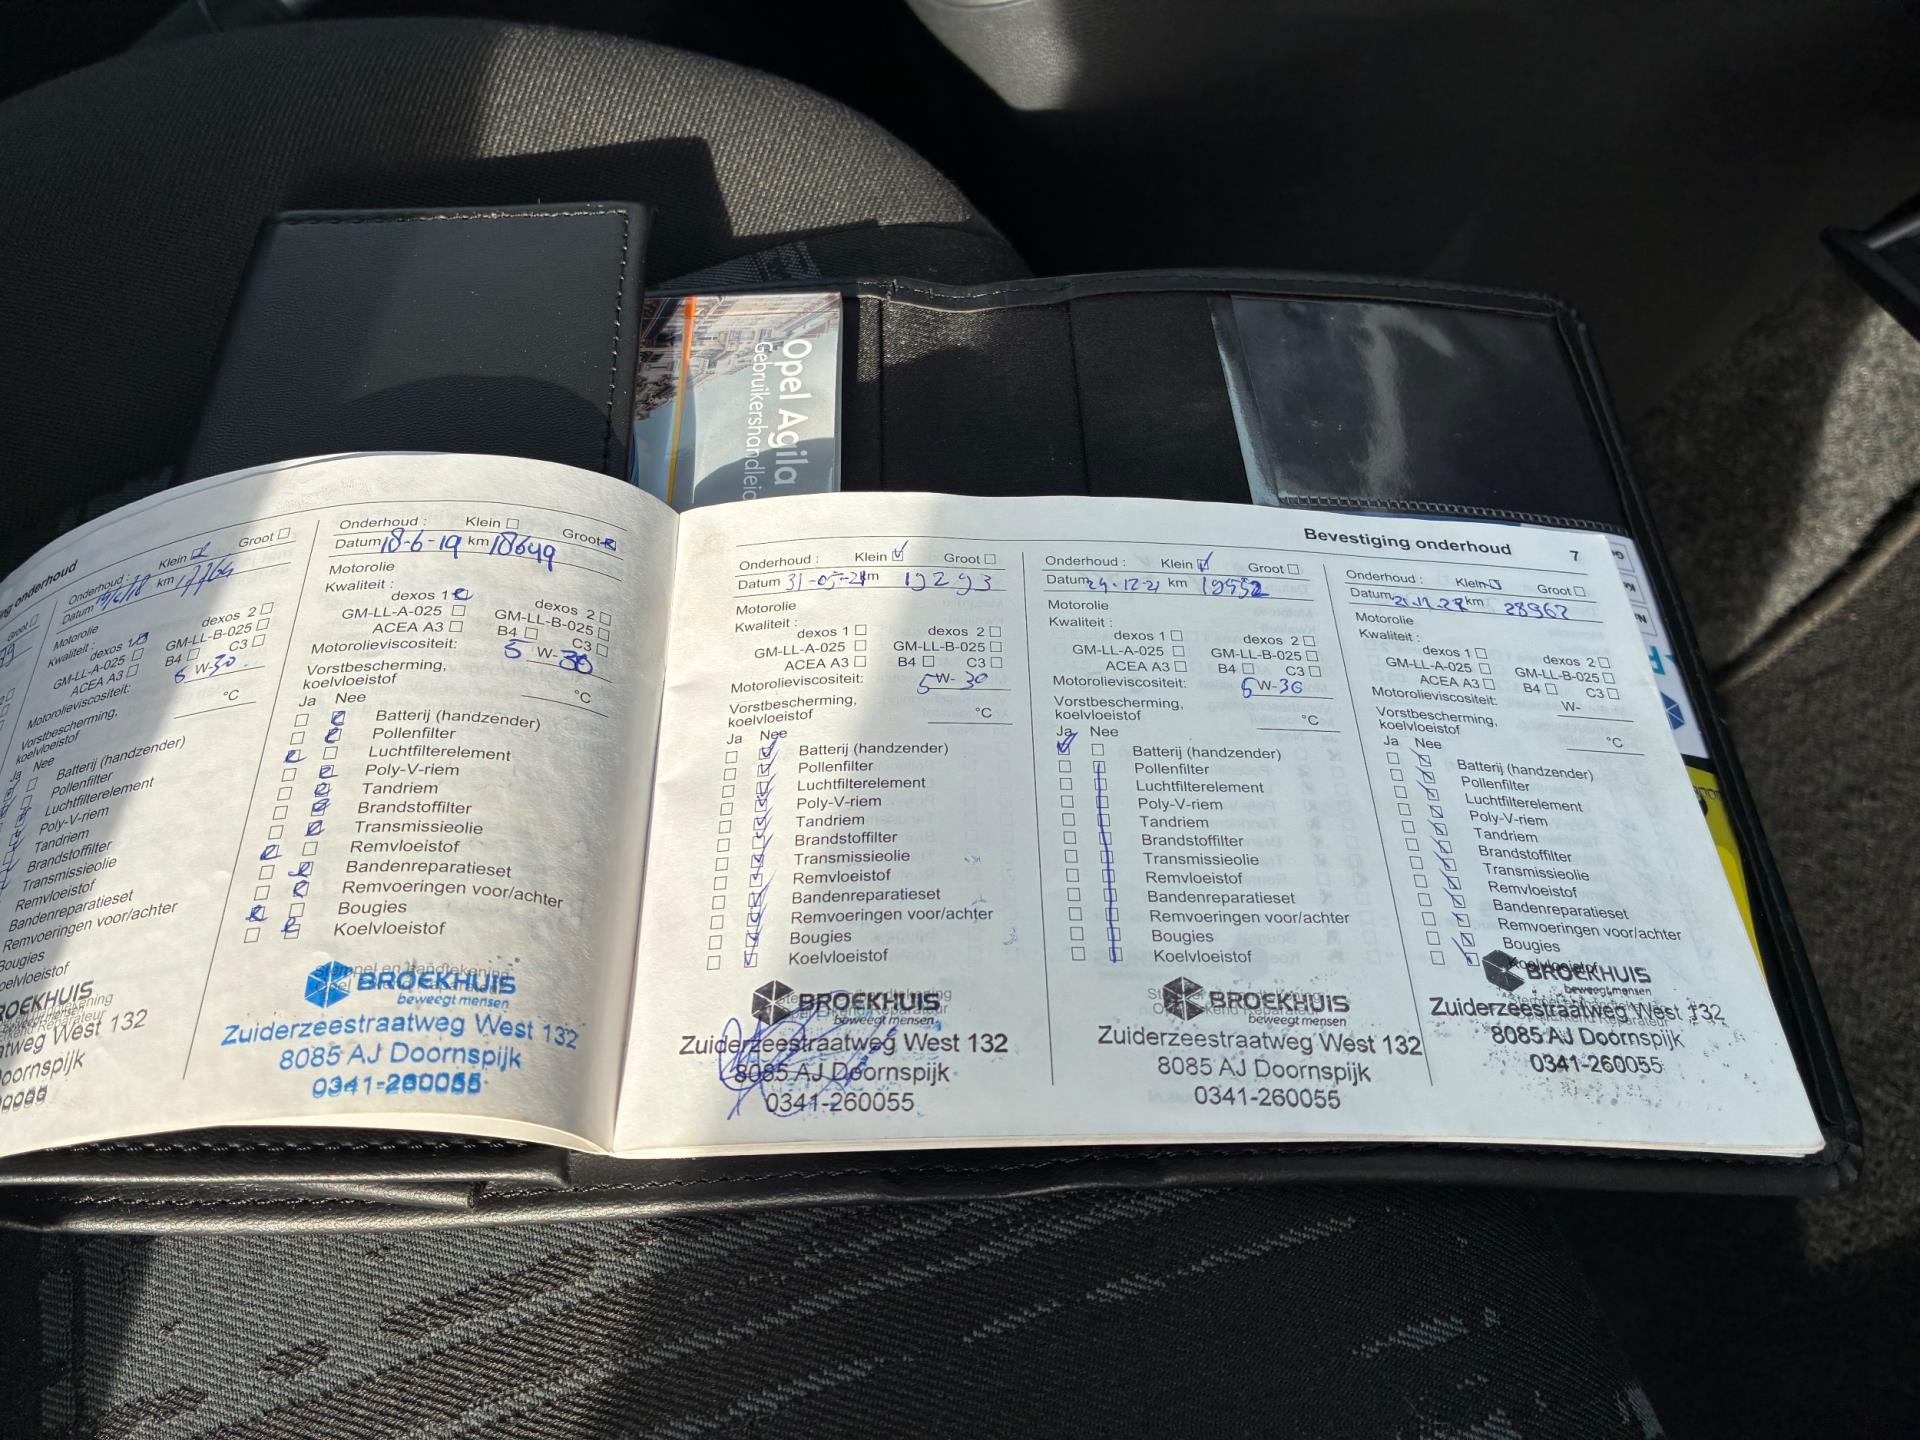 Opel Agila
Gebruikershandleid
onderhoud
Groot
Onderhoud : Klein Groot
km 17764
Motorolie
Kwaliteit : dexos 1 dexos 2
GM-LL-A-025 GM-LL-B-025
ACEA A3 B4 C3
Motorolieviscositeit: 5 W-30
Vorstbescherming,
koelvloeistof °C
Ja Nee
Batterij (handzender)
Pollenfilter
Luchtfilterelement
Poly-V-riem
Tandriem
Brandstoffilter
Transmissieolie
Remvloeistof
Bandenreparatieset
Remvoeringen voor/achter
Bougies
Koelvloeistof
BROEKHUIS
West 132
Doornspijk
Onderhoud : Klein Groot
Datum 18-6-19 km 18649
Motorolie
Kwaliteit :
dexos 1 dexos 2
GM-LL-A-025 GM-LL-B-025
ACEA A3 B4 C3
Motorolieviscositeit: 5 W-30
Vorstbescherming,
koelvloeistof °C
Ja Nee
Batterij (handzender)
Pollenfilter
Luchtfilterelement
Poly-V-riem
Tandriem
Brandstoffilter
Transmissieolie
Remvloeistof
Bandenreparatieset
Remvoeringen voor/achter
Bougies
Koelvloeistof
Stempel en handtekening
BROEKHUIS
beweegt mensen
Zuiderzeestraatweg West 132
8085 AJ Doornspijk
0341-260055
Bevestiging onderhoud 7
Onderhoud : Klein Groot
Datum 31-05-21 km 19293
Motorolie
Kwaliteit :
dexos 1 dexos 2
GM-LL-A-025 GM-LL-B-025
ACEA A3 B4 C3
Motorolieviscositeit: 5 W- 30
Vorstbescherming,
koelvloeistof °C
Ja Nee
Batterij (handzender)
Pollenfilter
Luchtfilterelement
Poly-V-riem
Tandriem
Brandstoffilter
Transmissieolie
Remvloeistof
Bandenreparatieset
Remvoeringen voor/achter
Bougies
Koelvloeistof
BROEKHUIS
beweegt mensen
Zuiderzeestraatweg West 132
8085 AJ Doornspijk
0341-260055
Onderhoud : Klein Groot
Datum km
Motorolie
Kwaliteit :
dexos 1 dexos 2
GM-LL-A-025 GM-LL-B-025
ACEA A3 B4 C3
Motorolieviscositeit: 5 W-30
Vorstbescherming,
koelvloeistof °C
Ja Nee
Batterij (handzender)
Pollenfilter
Luchtfilterelement
Poly-V-riem
Tandriem
Brandstoffilter
Transmissieolie
Remvloeistof
Bandenreparatieset
Remvoeringen voor/achter
Bougies
Koelvloeistof
BROEKHUIS
beweegt mensen
Zuiderzeestraatweg West 132
8085 AJ Doornspijk
0341-260055
Onderhoud : Klein Groot
Datum km 28967
Motorolie
Kwaliteit :
dexos 1 dexos 2
GM-LL-A-025 GM-LL-B-025
ACEA A3 B4 C3
Motorolieviscositeit: W-
Vorstbescherming,
koelvloeistof °C
Ja Nee
Batterij (handzender)
Pollenfilter
Luchtfilterelement
Poly-V-riem
Tandriem
Brandstoffilter
Transmissieolie
Remvloeistof
Bandenreparatieset
Remvoeringen voor/achter
Bougies
Koelvloeistof
BROEKHUIS
beweegt mensen
Zuiderzeestraatweg West 132
8085 AJ Doornspijk
0341-260055